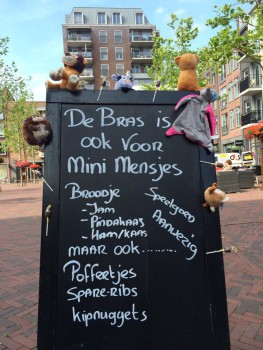 De Bras is
ook voor
Mini Mensjes
Broodje
- Jam
- Pindakaas
- Ham/kaas
Speelgoed
Aanwezig
maar ook..........
Poffertjes
Spare-ribs
kipnuggets